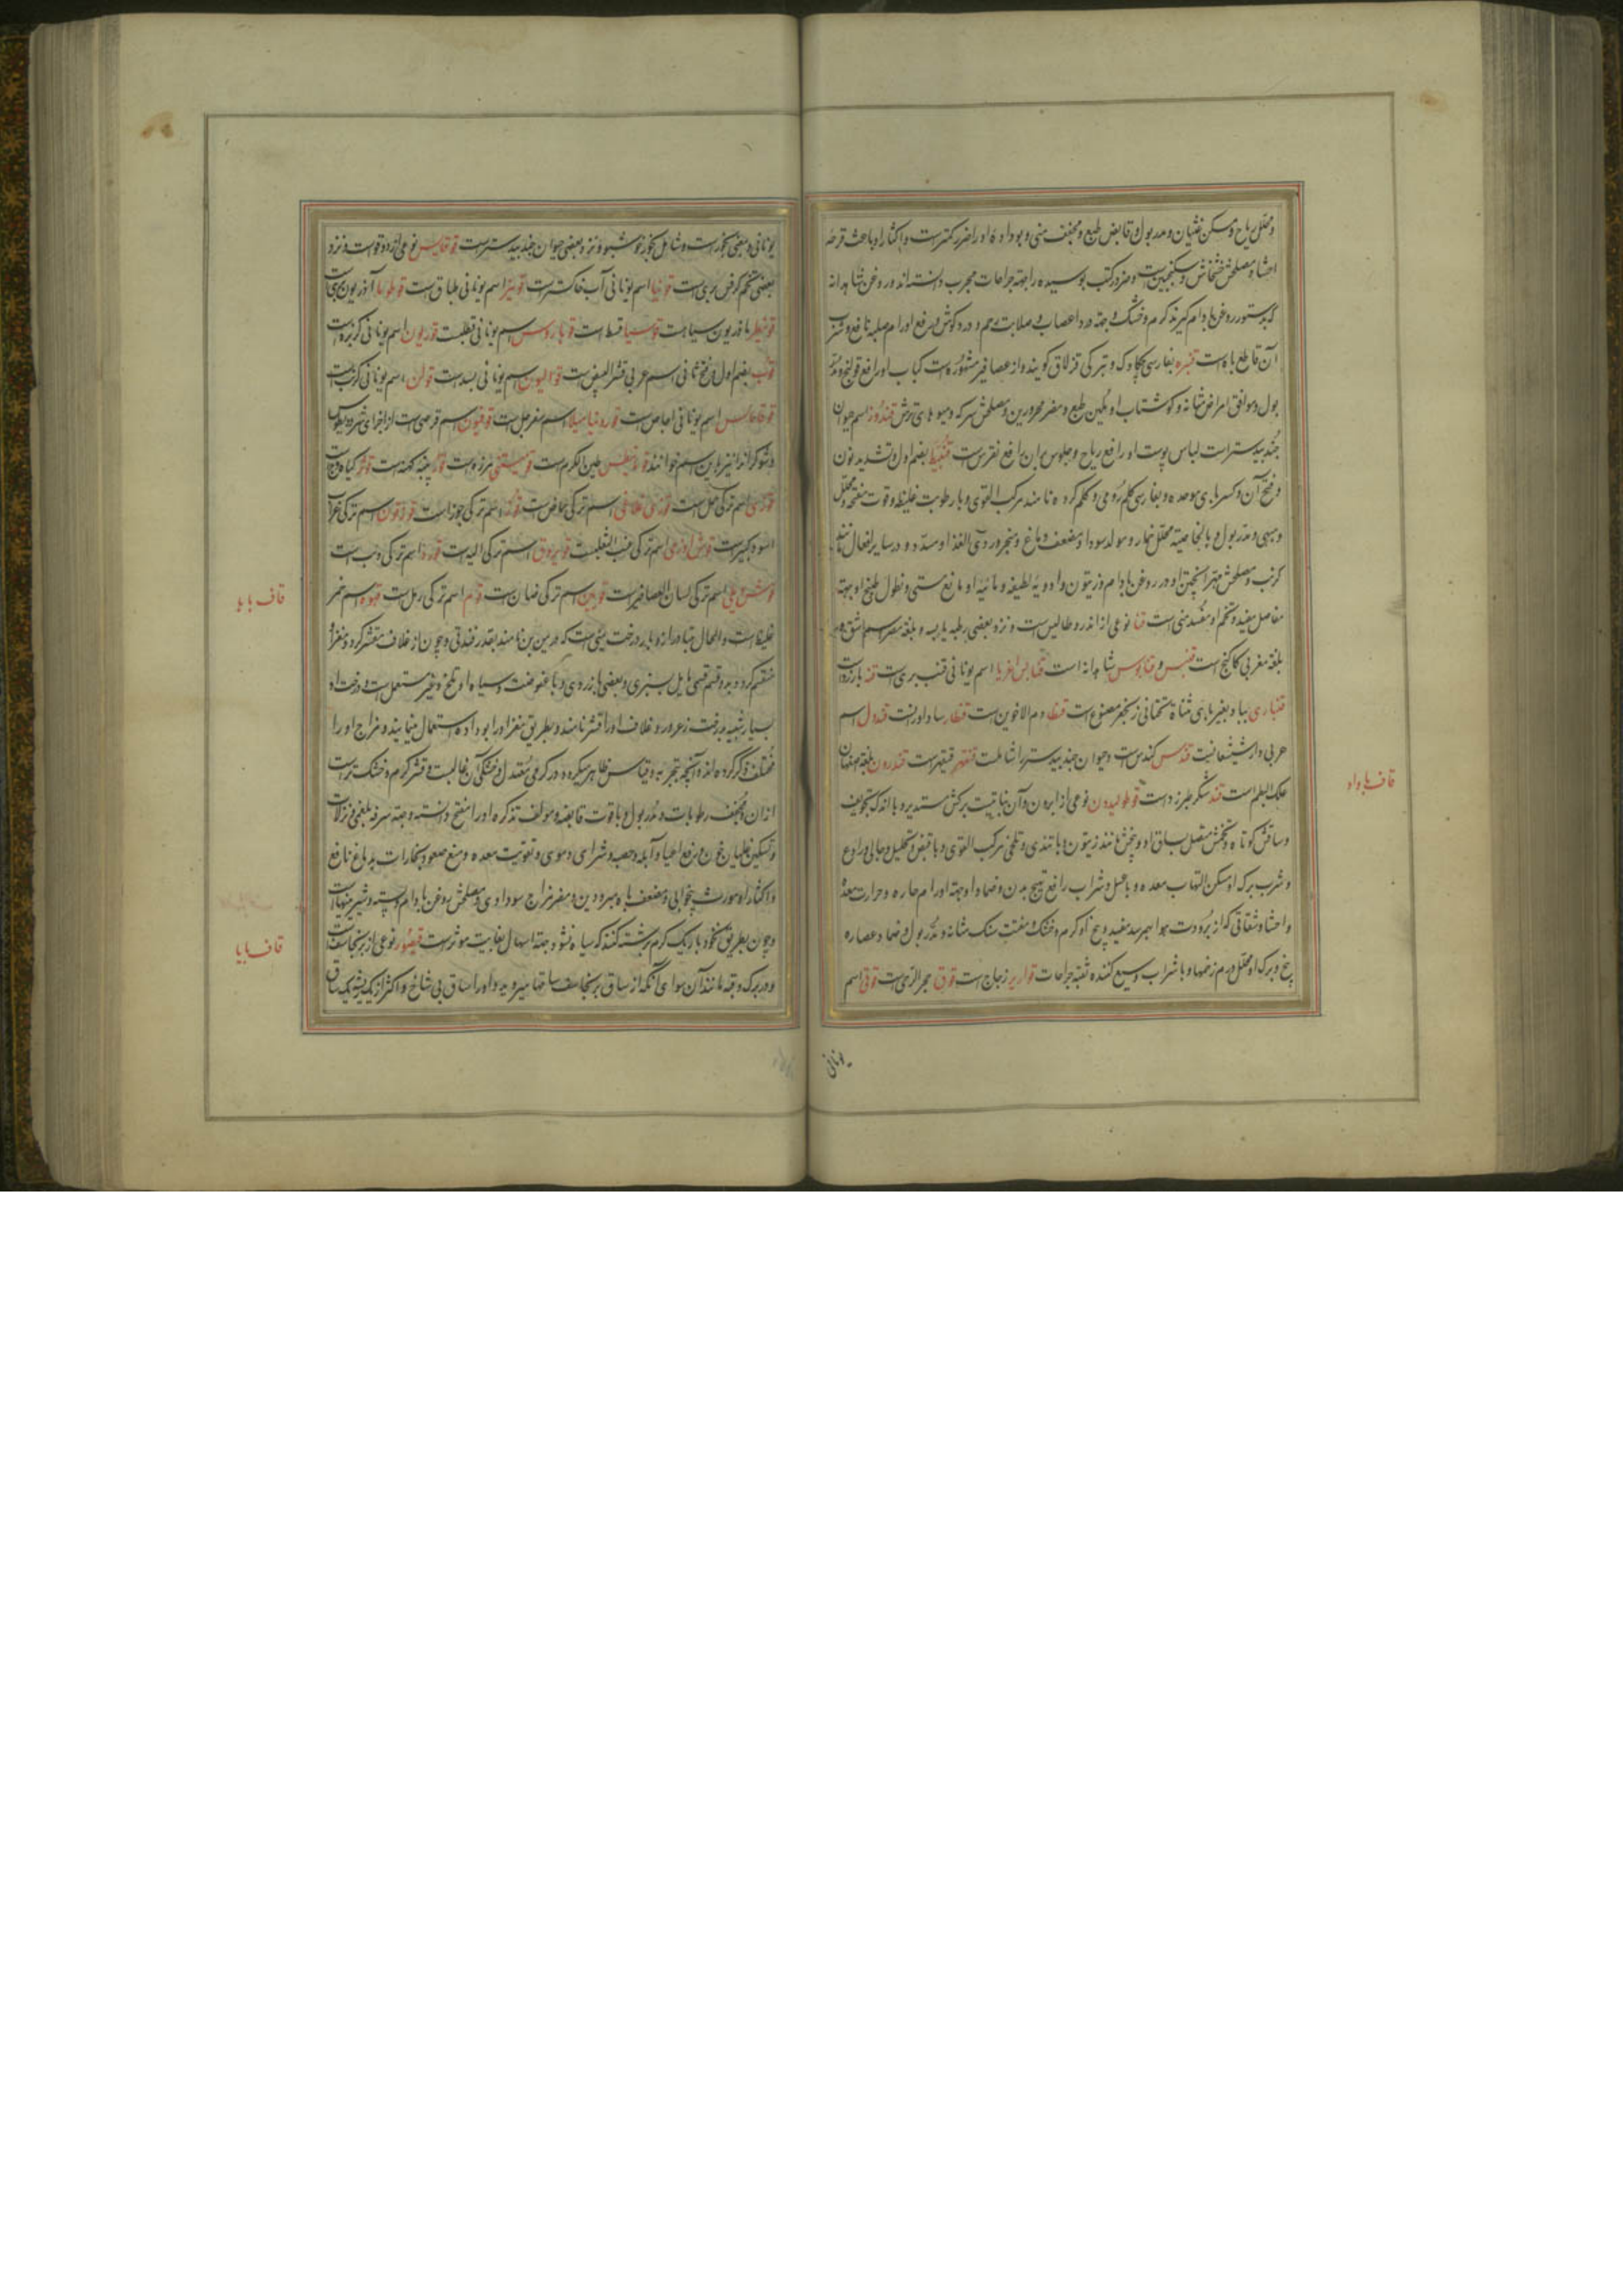 و محلل ریاح و مسکن غثیان و مدر بول و قابض طبع و مجفف منی و بوداده او را ضرر کمتر است و اکثار او باعث قرحه
احشا و مصلحش خشخاش و سکنجبین است و ضرور کتب بوسیده را جهة جراحات مجرب دانسته‌اند و روغن شاهدانه
که بدستور روغن بادام گیرند گرم و خشک و جهة درد اعصاب و صلابت رحم و درد گوش و رفع اورام صلبه نافع و شرب
آن قاطع باه است قنبره بفارسی چکاوک و بترکی قزلاق گویند و از عصافیر مشهوره است کباب او رافع قولنج و مدر
بول و موافق امراض مثانه و گوشتاب او ملین طبع و مضر محرورین و مصلحش سرکه و میوهای ترش قندوز اسم حیوان
جندبیدستر است لباس پوست او رافع ریاح و جلوس بران رافع نقرس است قنبیط بضم اول و تشدید نون
و فتح آن و کسر بای موحده و بفارسی کلم رومی و کلم گرده نامند مرکب القوی و با رطوبت غلیظه و قوت منفتحه و محلل
و مبهی و مدر بول و بالخاصیة محلل خمار و مولد سودا و مضعف دماغ و مبخر و ردی الغذا و مسدد و در سایر افعال مانند
کرنب و مصلحش مهرا پختن او در روغن بادام و زیتون و ادویه لطیفه و مائیه او مانع مستی و نطول طبیخ او جهة
مفاصل مفید و تخم او مفسد منی است قنا نوعی از اندروطالیس است و نزد بعضی رطبه یابسه و بلغة مصر اسم اشق و
بلغة مغربی کاکنج است قنبس و قنابوس شاهدانه است قنابس اغریا اسم یونانی قنب بری است قنه بارزد است
قنباری بیا و بغیر بای مثناة تحتانی زنجفر مصنوع است قنطا دم الاخوین است قنطار ساداوران است قندول اسم
عربی دارشیشعان است قندس کندس است و حیوان جندبیدستر را شاملست قنقهر قیقهر است قندرون بلغة اصفهان
علک البطم است قند شکر طبرزد است قوطولیدون نوعی از ابرون و آن نباتیست برکش مستدیر و با اندک تجویف
و ساقش کوتاه و تخمش متصل بساق او و بیخش مانند زیتون و با تندی و تلخی مرکب القوی و با قبض و تحلیل و جالی و رادع
و شرب برک او مسکن التهاب معده و با عسل و شراب رافع تهیج بدن و ضماد او جهة اورام حاره و حرارت معده
و احشا و شقاقی که از برودت هوا بهم رسد مفید و بیخ او گرم و خشک و مفتت سنک مثانه و مدر بول و ضماد عصاره
بیخ و برک او محلل ورم زخمها و با شراب وسیع کننده ثقبة جراحات قواریر زجاج است قوق حجر الرحی است قوقی اسم
یونانی
قاف با واو
یونانی و بمعنی بخور است و شامل بخور خوشبو و نزد بعضی حیوان جندبیدستر است قوقالیس نوعی از دوقو است و نزد
بعضی تخم کرفس بری است قونیا اسم یونانی آب خاکستر است قونیزا اسم یونانی طباق است
ماذریون سیاهست قوسیا قسط است قوباروس اسم یونانی ثعلبست قوریون اسم یونانی کزبره است
قوب بضم اول و فتح ثانی اسم عربی قشر البیض است قوالیون اسم یونانی بسد است
اسم یونانی اجاص است قودونیا میلا اسم سفرجل است قوقیون اسم قرصی است از اجزای مثرودیطوس
قوزی اسم ترکی حمل است قوزی قلاغی اسم ترکی حماض است قوز اسم ترکی جوز است
قوش اوزمی اسم ترکی عنب الثعلبست قویروق اسم ترکی الیه است
اسم ترکی لسان العصافیر است قوین اسم ترکی ضان است قوم اسم ترکی رمل است قهوه اسم خمر
غلیظ است و الحال متبادر ازو بار درخت یمنی است که در یمن بن نامند بقدر فندقی و چون از غلاف مقشر کرده مغز او
منقسم گردد بدو قسم قسمی مایل بسبزی و بعضی بزردی و با عفوصت و سیاه او تلخ و غیر مستعمل است و درخت او
بسیار شبیه بدرخت زعرور و غلاف او را قشر نامند و بطریق مغز او را بوداده استعمال مینمایند و مزاج او را
مختلف ذکر کرده‌اند و آنچه بتجربه و قیاس ظاهر میگردد در گرمی معتدل و خشکی آن غالبست و قشر گرم و خشک‌تر است
ازان و مجفف رطوبات و مدر بول و با قوت قابضه و مولف تذکره او را مفتح دانسته و جهة سرفه بلغمی و نزلات
و تسکین غلیان خون و رفع اعیا و آبله و حصبه و شرای دموی و تقویت معده و منع صعود بخارات بدماغ نافع
و اکثار او مورث بیخوابی و مضعف باه مبرودین و مضر مزاج سوداوی و مصلحش روغن بادام و پسته و شیرینیهاست
و چون بطریق نخود با ریک گرم برشته کنند که سیاه نشود جهة اسهال بغایت موثر است قیصور نوعی از برنجاسف است
و در برک و قبه مانند آن سوای آنکه از ساق برنجاسف ساقها میروید و او را ساق بی شاخ و اکثر از یک ریشه یک ساق
قاف با ها
قاف با یا